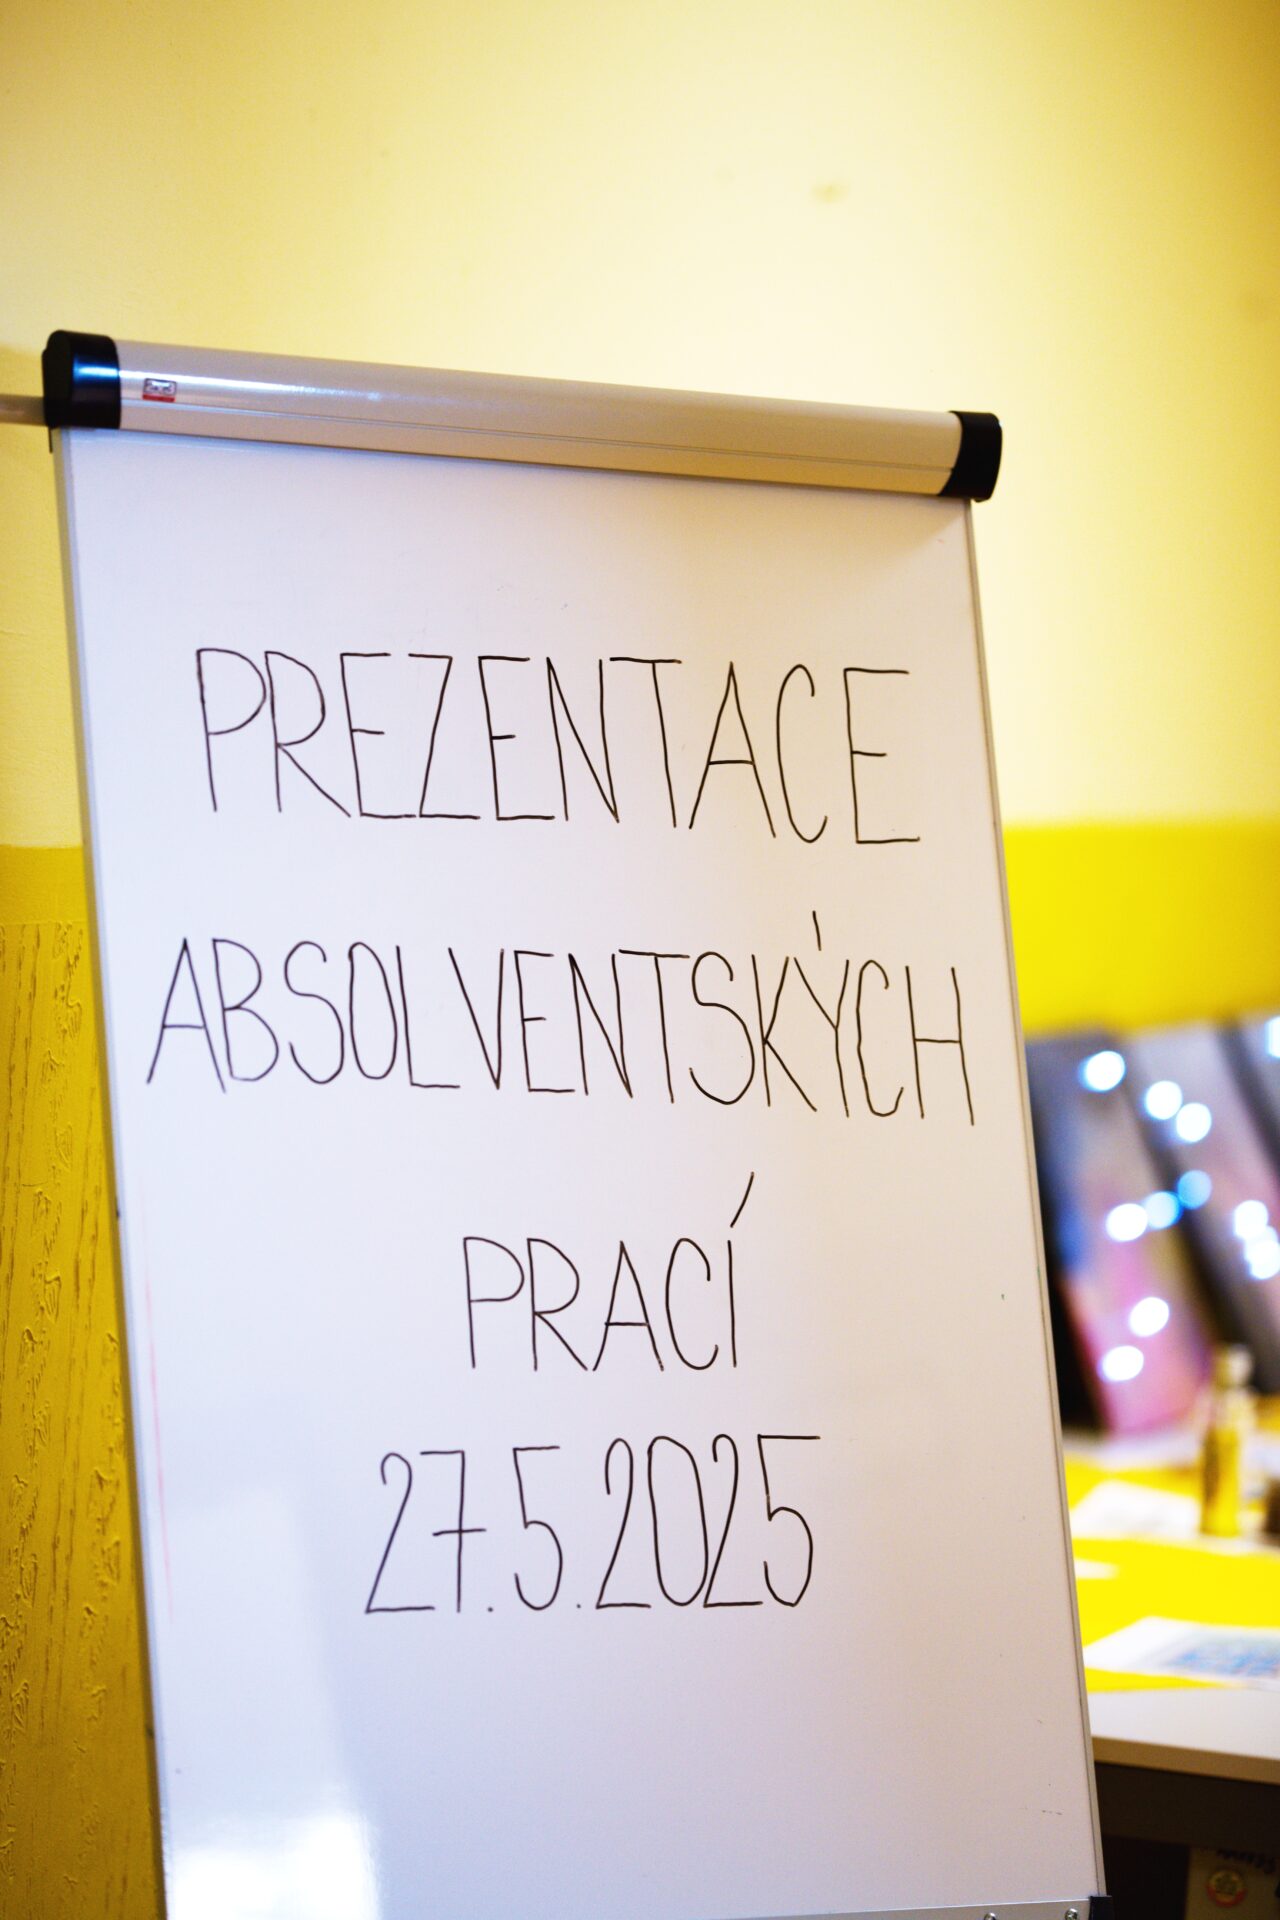 PREZENTACE
ABSOLVENTSKÝCH
PRACÍ
27.5.2025